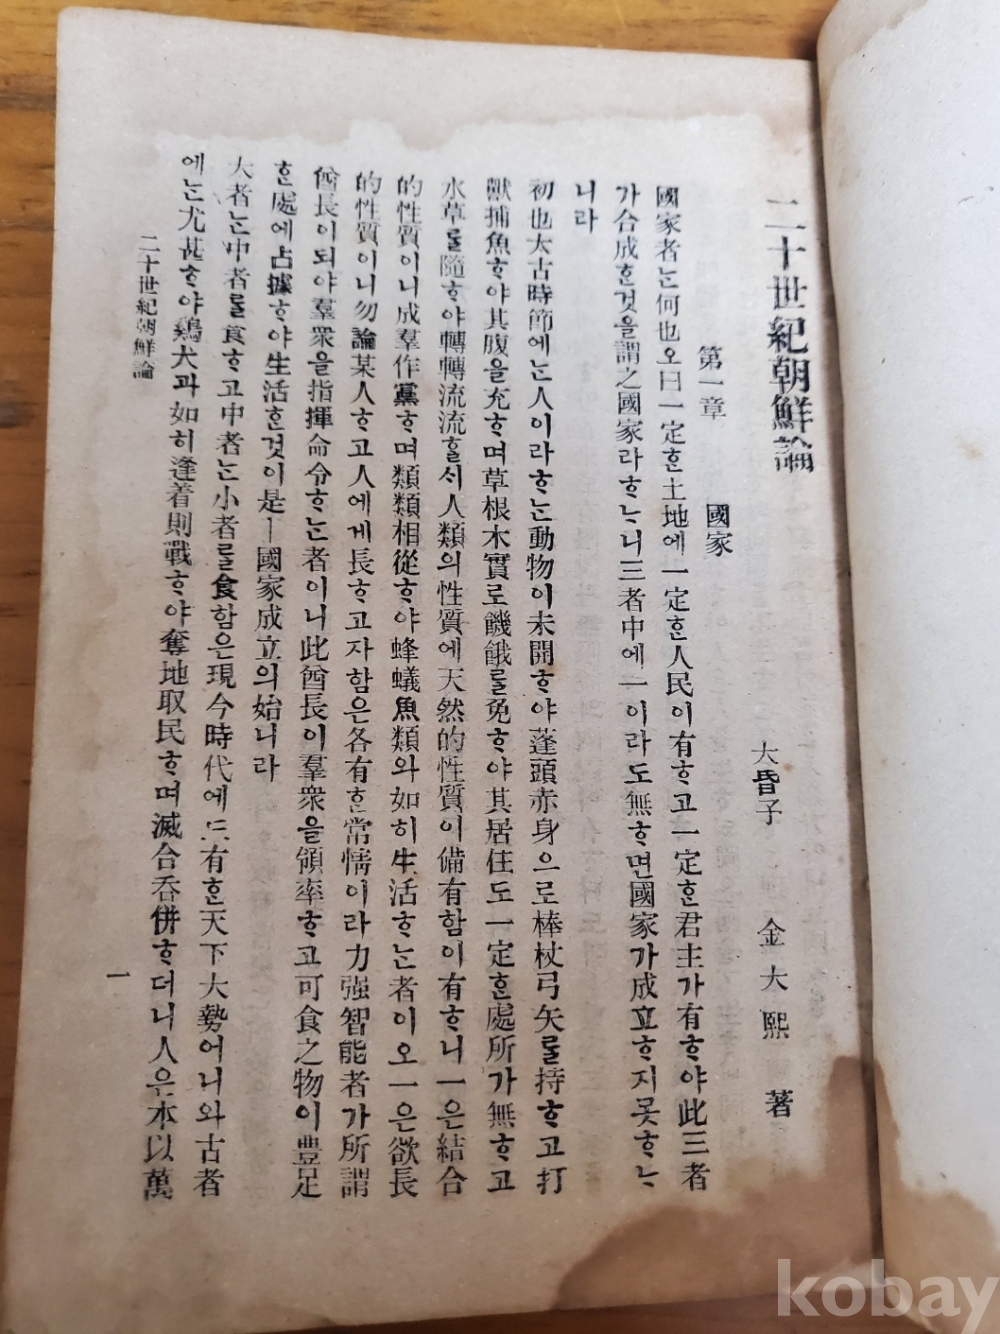 二十世紀朝鮮論
大昏子 金大熙 著
第一章 國家
國家者ᄂᆞᆫ何也오曰一定ᄒᆞᆫ土地에一定ᄒᆞᆫ人民이有ᄒᆞ고一定ᄒᆞᆫ君主가有ᄒᆞ야此三者
가合成ᄒᆞᆫ것을謂之國家라ᄒᆞᄂᆞ니三者中에一이라도無ᄒᆞ면國家가成立ᄒᆞ지못ᄒᆞᄂᆞ
니라
初也太古時節에ᄂᆞᆫ人이라ᄒᆞᄂᆞᆫ動物이未開ᄒᆞ야蓬頭赤身으로棒杖弓矢ᄅᆞᆯ持ᄒᆞ고打
獸捕魚ᄒᆞ야其腹을充ᄒᆞ며草根木實로饑餓ᄅᆞᆯ免ᄒᆞ야其居住도一定ᄒᆞᆫ處所가無ᄒᆞ고
水草ᄅᆞᆯ隨ᄒᆞ야轉轉流流ᄒᆞᆯᄉᆡ人類의性質에天然的性質이備有함이有ᄒᆞ니一은結合
的性質이니成羣作黨ᄒᆞ며類類相從ᄒᆞ야蜂蟻魚類와如히生活ᄒᆞᄂᆞᆫ者이오一은欲長
的性質이니勿論某人ᄒᆞ고人에게長ᄒᆞ고자함은各有ᄒᆞᆫ常情이라力强智能者가所謂
酋長이되야羣衆을指揮命令ᄒᆞᄂᆞᆫ者이니此酋長이羣衆을領率ᄒᆞ고可食之物이豊足
ᄒᆞᆫ處에占據ᄒᆞ야生活ᄒᆞᆫ것이是ㅣ國家成立의始니라
大者ᄂᆞᆫ中者ᄅᆞᆯ食ᄒᆞ고中者ᄂᆞᆫ小者ᄅᆞᆯ食함은現今時代에도有ᄒᆞᆫ天下大勢어니와古者
에ᄂᆞᆫ尤甚ᄒᆞ야鷄犬과如히逢着則戰ᄒᆞ야奪地取民ᄒᆞ며滅合呑併ᄒᆞ더니人은本以萬
二十世紀朝鮮論
一
kobay